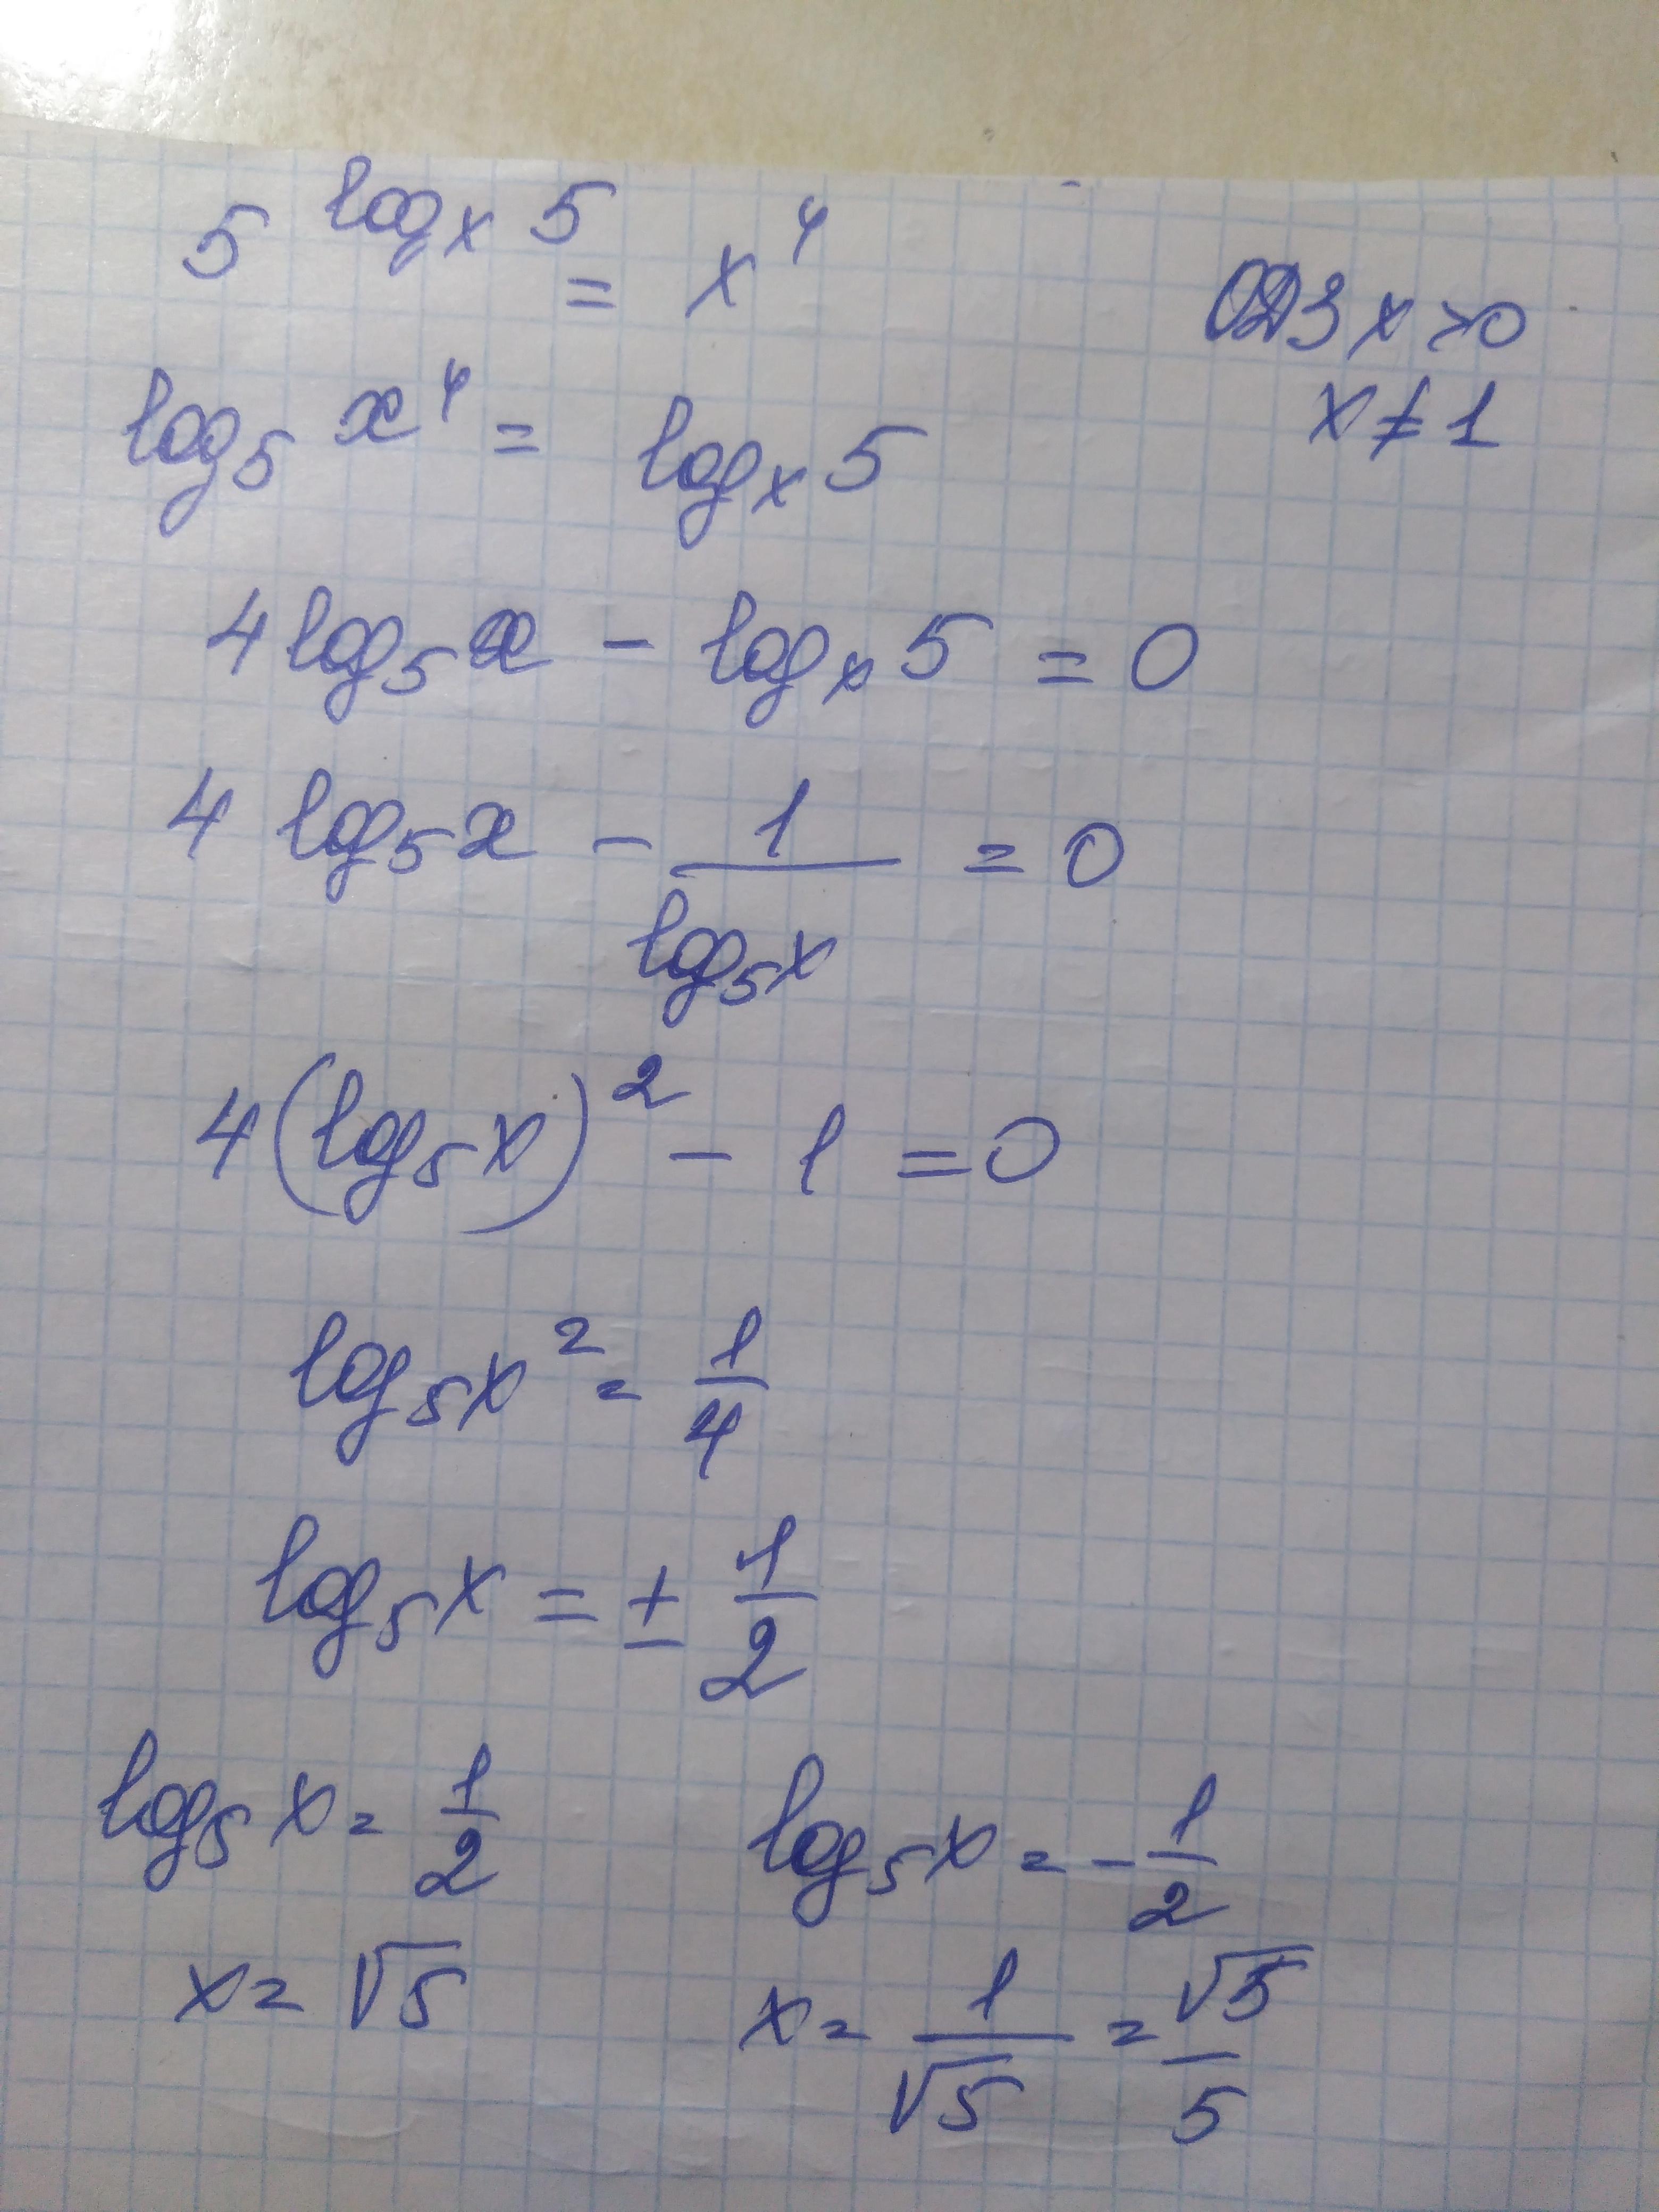 5^{log_x 5} = x^4
ОДЗ x > 0
x ≠ 1
log_5 x^4 = log_x 5
4 log_5 x - log_x 5 = 0
4 log_5 x - 1/(log_5 x) = 0
4(log_5 x)^2 - 1 = 0
log_5 x^2 = 1/4
log_5 x = ± 1/2
log_5 x = 1/2    log_5 x = - 1/2
x = √5    x = 1/√5 = √5/5